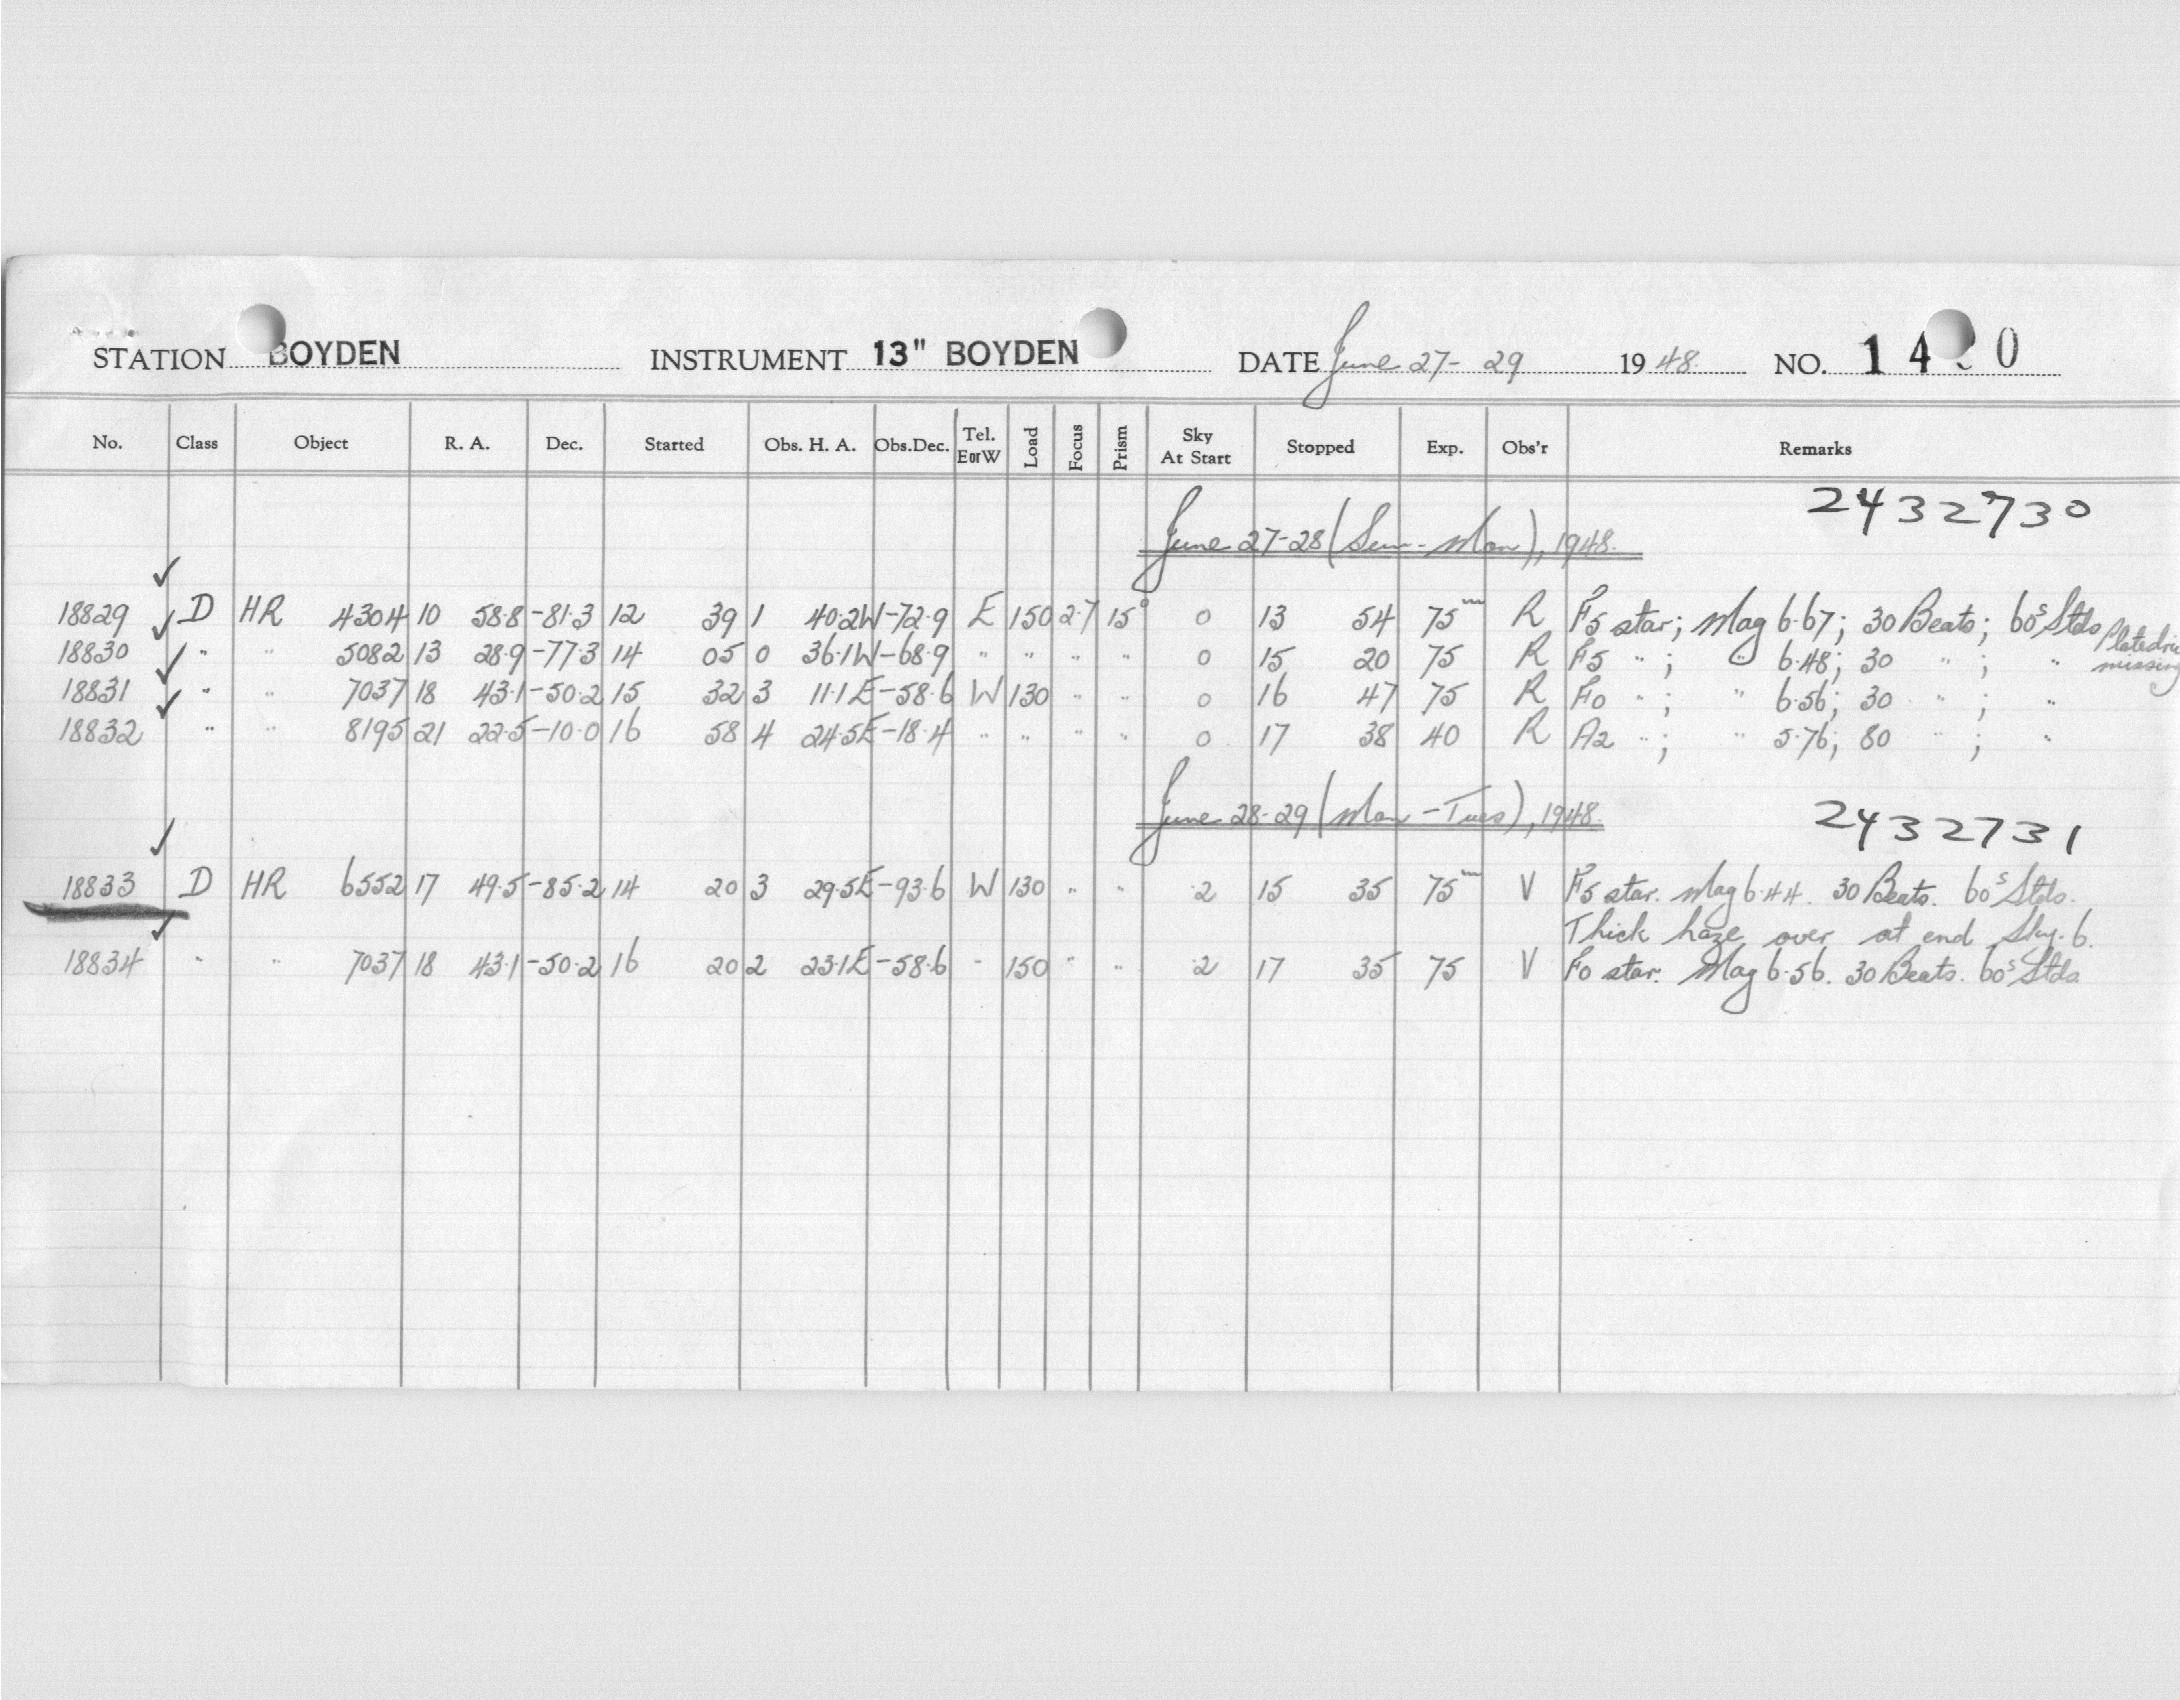 STATION BOYDEN INSTRUMENT 13" BOYDEN DATE June 27-29 1948. NO. 14 0
No. Class Object R. A. Dec. Started Obs. H. A. Obs.Dec. Tel. E or W Load Focus Prism Sky At Start Stopped Exp. Obs'r Remarks
2432730
June 27-28 (Sun-Mon), 1948.
18829 D HR 4304 10 58.8 -81.3 12 39 1 40.2W -72.9 E 150 2.7 15° 0 13 54 75m R F5 star; Mag 6.67; 30 Beats; 60s Stds
18830 " " 5082 13 28.9 -77.3 14 05 0 36.1W -68.9 " " " " 0 15 20 75 R F5 " ; " 6.48; 30 " ; " missing
18831 " " 7037 18 43.1 -50.2 15 32 3 11.1E -58.6 W 130 " " 0 16 47 75 R F0 " ; " 6.56; 30 " ; "
18832 " " 8195 21 22.5 -10.0 16 58 4 24.5E -18.4 " " " " 0 17 38 40 R A2 " ; " 5.76; 80 " ; "
June 28-29 (Mon-Tues), 1948.
2432731
18833 D HR 6552 17 49.5 -85.2 14 20 3 29.5E -93.6 W 130 " " 2 15 35 75m V F5 star. Mag 6.44. 30 Beats. 60s Stds.
Thick haze over at end Sky. 6.
18834 " " 7037 18 43.1 -50.2 16 20 2 23.1E -58.6 " 150 " " 2 17 35 75 V F0 star. Mag 6.56. 30 Beats. 60s Stds.